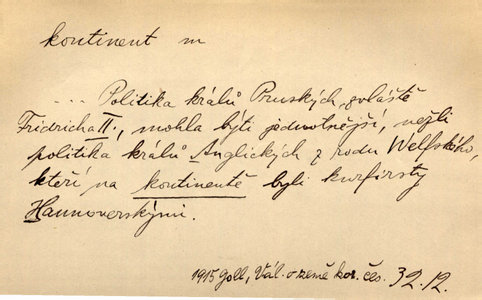 kontinent m
... Politika králů Pruských, zvláště
Fridricha II., mohla býti jednotnější, nežli
politika králů Anglických z rodu Welfského,
kteří na kontinentě byli kurfirsty
Hannoverskými.
1915 Goll, Vál. o země kor. čes. 32.12.